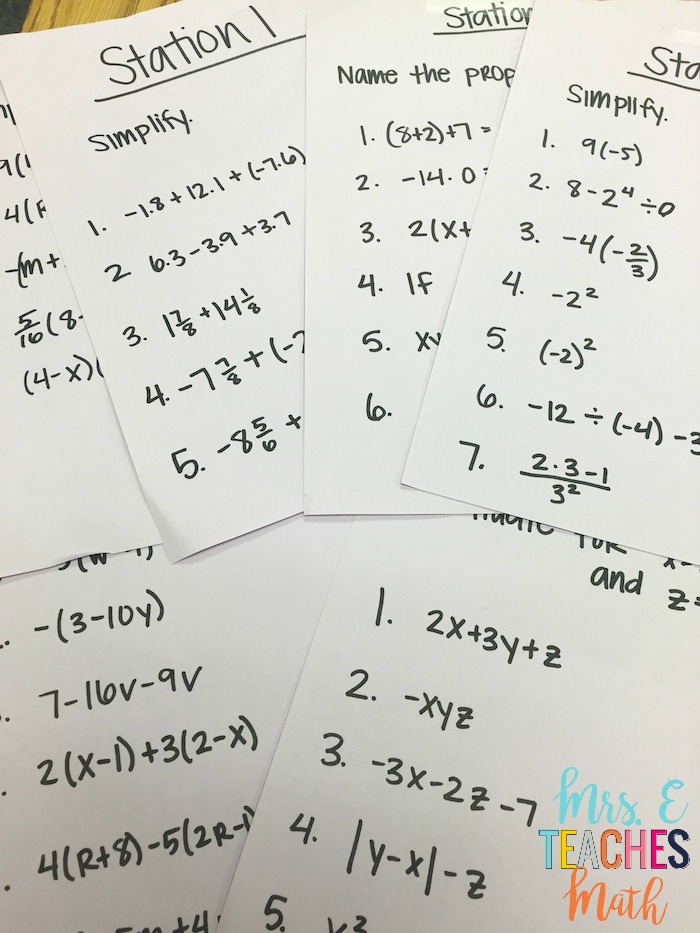 Station 1
Simplify.
1. -1.8 + 12.1 + (-7.6)
2 6.3 - 3.9 + 3.7
3. 1 7/8 + 14 1/8
4. -7 7/8 + (-7
5. -8 5/6 +
Station
Name the prop
1. (8+2)+7 =
2. -14 · 0 =
3. 2(x+
4. If
5. xy
6.
Sta
Simplify.
1. 9(-5)
2. 8 - 2⁴ ÷ 0
3. -4(-2/3)
4. -2²
5. (-2)²
6. -12 ÷ (-4) - 3
7. (2·3-1)/3²
4(R
-(m+
5/16(8-
(4-x)(
-(3-10y)
7-16v-9v
2(x-1)+3(2-x)
4(R+8)-5(2R-1)
m+4
for x
and z=
1. 2x+3y+z
2. -xyz
3. -3x-2z-7
4. |y-x|-z
5.
Mrs. E
TEACHES
Math